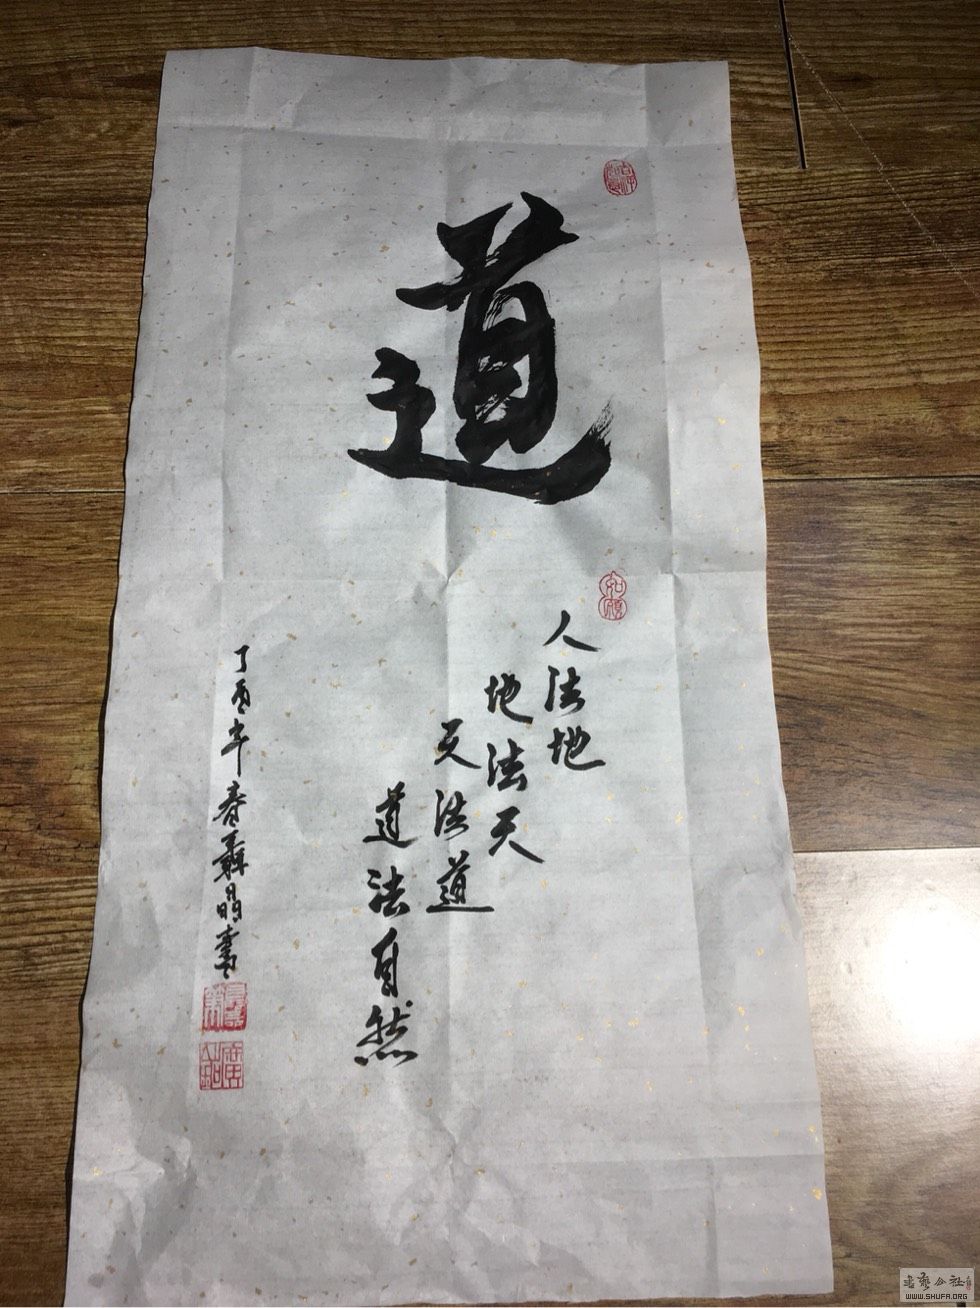 道
人法地
地法天
天法道
道法自然
丁酉年春
書
如願
書艺公社
WWW.SHUFA.ORG